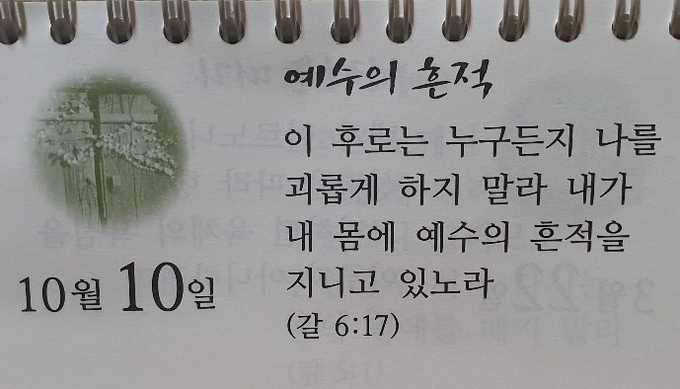 예수의 흔적
이 후로는 누구든지 나를
괴롭게 하지 말라 내가
내 몸에 예수의 흔적을
지니고 있노라
(갈 6:17)
10월 10일